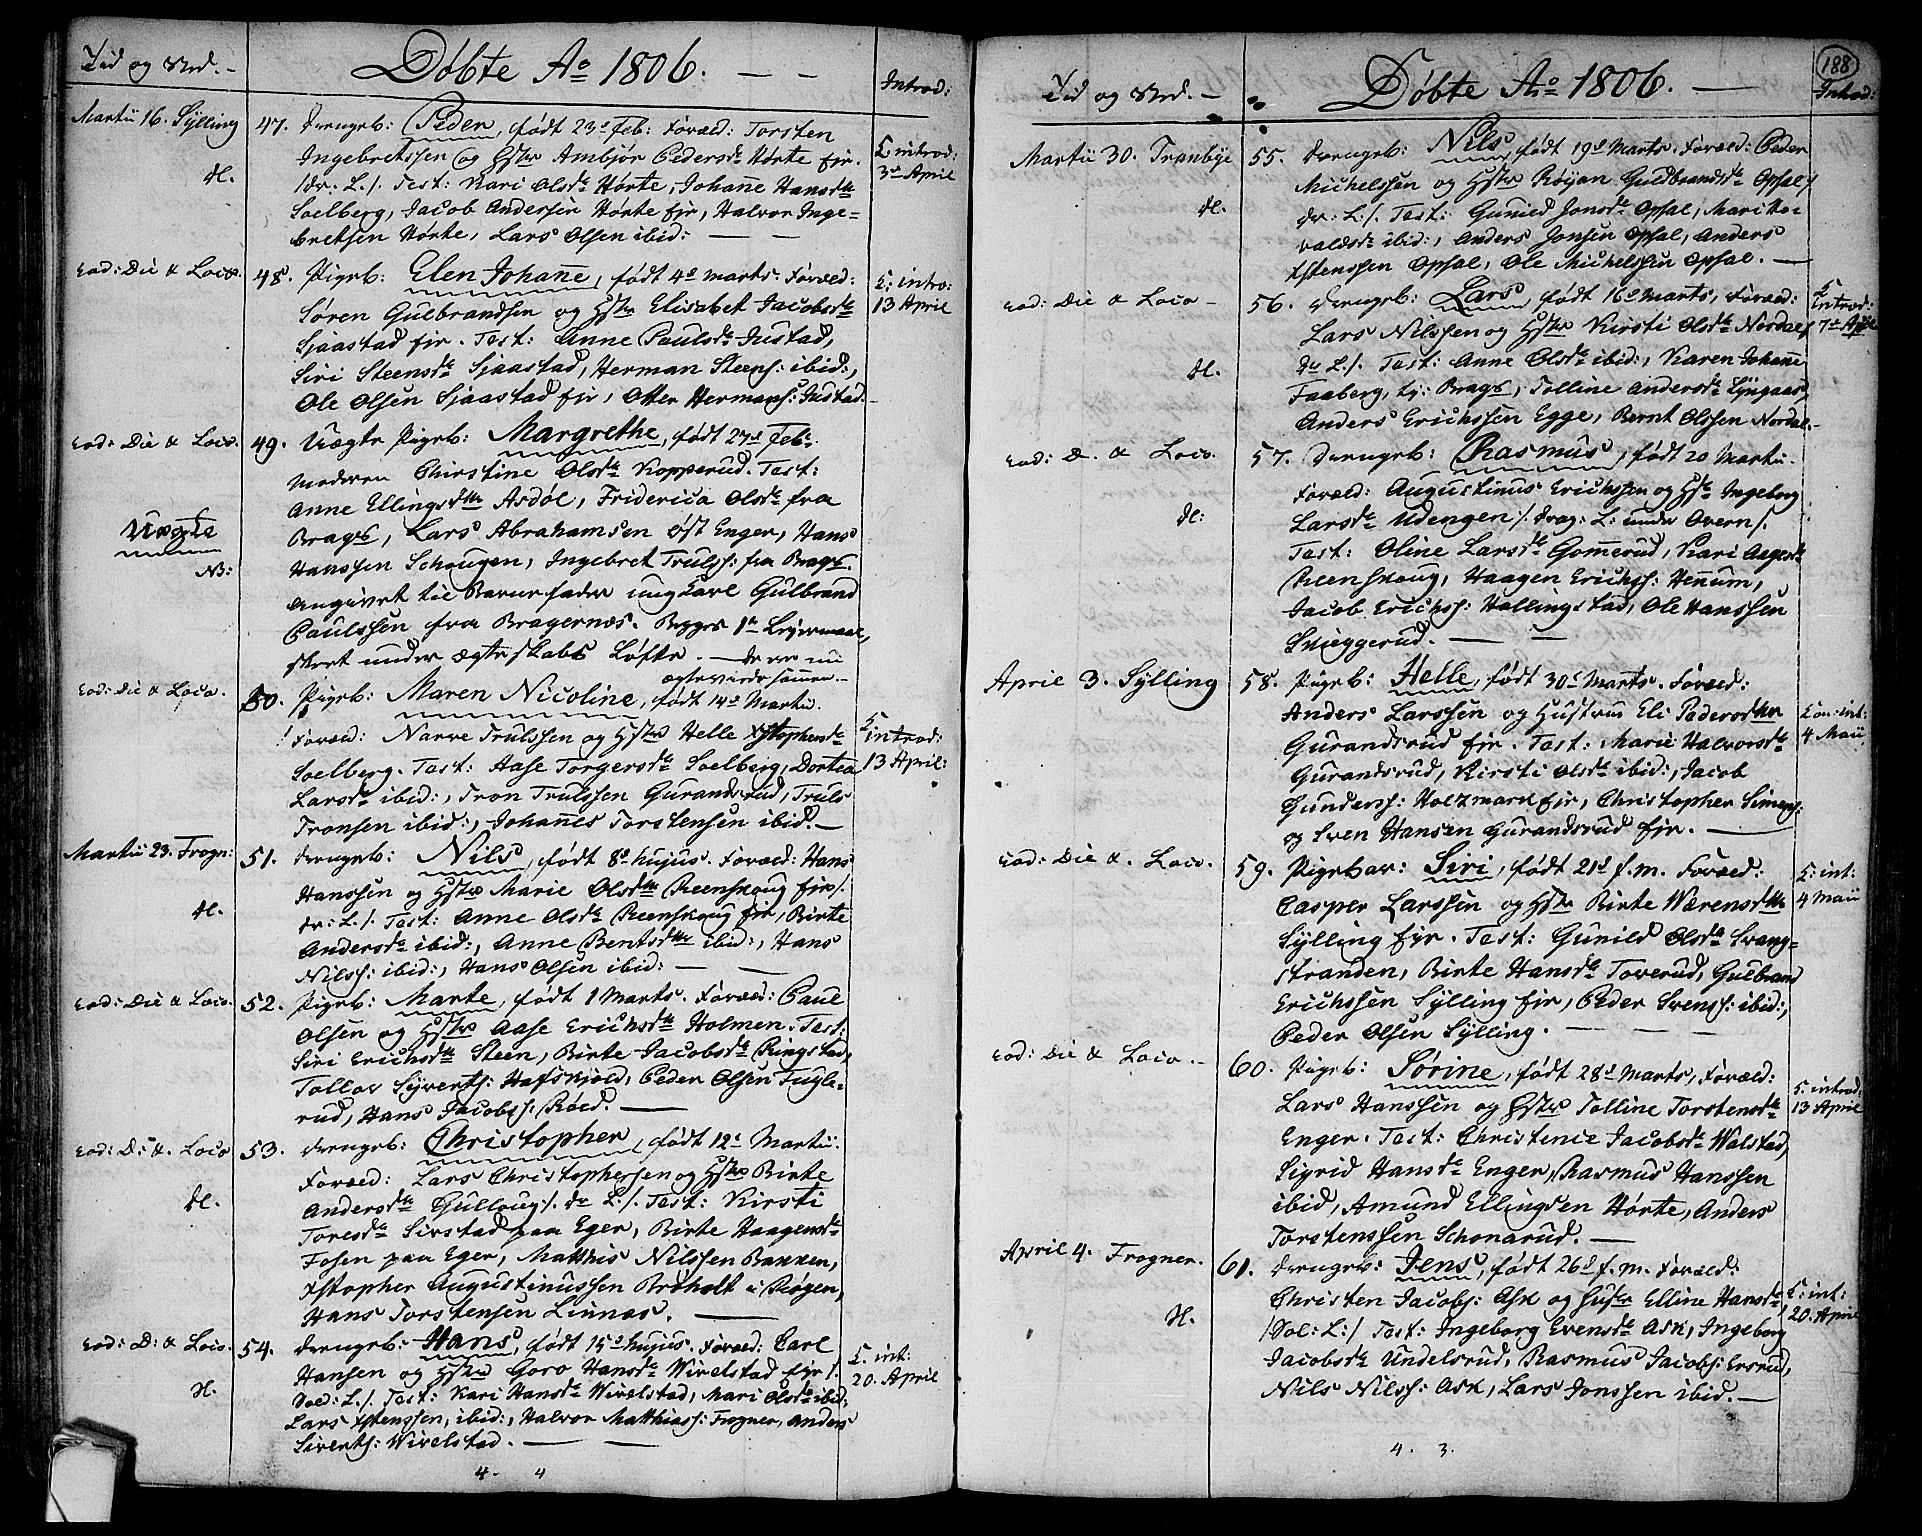 Tid og Sted. –
Døbte Ao 1806. — –
Introd:
Martii 16. Sylling
47. Drengeb: Peder, født 23d Feb: Foræld: Torsten
Ingebretssen og Hstr Ambjør Pedersdr Hørte fjr.
/dr. L./. Test: Kari Olsdr Hørte, Johanne Hansdtr
Soelberg, Jacob Andersen Hørte fjr, Halvor Inge=
bretsen Hørte, Lars Olsen ibid: — —
introd:
3d April
Eod: Die & Loco.
48. Pigeb: Elen Johanne, født 4d Marts. Foræld:
Søren Gulbrandsen og Hstr Elisabet Jacobsdr
Sjaastad fjr. Test: Anne Paulsdr Justad,
Siri Steensdr Sjaastad, Herman Steens: ibid:,
Ole Olsen Sjaastad fjr, Otter Hermans: Justad.
intro:
13 April
Eod: Die & Loco.
49. Uægte Pigeb: Margrethe, født 27d Feb:
Moderen Christine Olsdr Kopperud. Test:
Anne Ellingsdtr Asdøl, Friderica Olsdr fra
Brags, Lars Abrahamsen Øst Enger, Hans
Hanssen Schougen, Ingebret Truls: fra Brags.
Angivet til Barnefader ungkarl Gulbrand
Paulssen fra Bragernæs. Begges 1te Leyermaal,
skeet under ægteskabs Løfte. — De ere nu
ægteviede sammen –
Uægte
NB:
Eod: Die & Loco.
50. Pigeb: Maren Nicoline, født 14d Martii.
Foræld: Narve Trulssen og Hstr Helle Xstophersdr
Soelberg. Test: Aase Torgersdr Soelberg, Dortea
Larsdr ibid:, Tron Trulssen Gurandsrud, Truls
Tronsen ibid:, Johannes Torstensen ibid. —
introd:
13 April:
Martii 23. Frogn:
51. Drengeb: Nils, født 8d hujus. Foræld: Hans
Hanssen og Hstr Marie Olsdtr Reenskoug fjr/.
dr: L./. Test: Anne Olsdr Reenskoug fjr, Birte
Andersdr ibid:, Anne Bentsdtr ibid:, Hans
Nilss: ibid:, Hans Olsen ibid: — —
Eod: Die & Loco.
52. Pigeb: Marte, født 1 Marts. Foræld: Paul
Olsen og Hstr Aase Erichsdr Holmen. Test:
Siri Erichsdtr Steen, Birte Jacobsdr Ringstad,
Tollov Syverts: Hafskjold, Peder Olsen Fugle=
rud, Hans Jacobs: Røed. —
Eod: D: &. Loco
53. Drengeb: Christopher, født 12t Martii.
Foræld: Lars Christophersen og Hstr Birte
Andersdtr Gulloug/. dr L./. Test: Kirsti
Toresdr Sirstad paa Eger, Birte Haagensdr
Fosen paa Eger, Matthis Nilssen Bakken,
Xstopher Augustinussen Brøholt i Røgen,
Hans Torstensen Linnæs. —
Eod: D: & Loco.
54. Drengeb: Hans, født 15d hujus. Foræld: Carl
Hansen og Hstr Goro Hansdr Wivelstad fjr/.
Sold: L./. Test: Kari Hansdr Wivelstad, Mari Olsdr ibid:
Lars Xstenssen, ibid:, Halvor Matthias: Frogner, Anders
Siverts: Wivelstad. — —
int:
20. April
4. 4
188
Tid og Sted. –
Døbte Ao 1806. —
Introd:
Martii 30. Tranbye
55. Drengeb: Nils, født 19d Marts. Foræld: Peder
Michelssen og Hstr Røjan Guldbrandsdr Opsal/
dr: L./. Test: Gunild Jonsdr Opsal, Mari Ho-
valdsdr ibid:, Anders Jonsen Opsal, Anders
Xstenssen Opsal, Ole Michelssen Opsal. —
Eod: Die & Loco –
56. Drengeb: Lars, født 16d Marts, Foræld:
Lars Nilssen og Hstr Kirsti Olsdr Nordal/
dr L./. Test: Anne Olsdr ibid:, Karen Johanne
Faaberg, Brags, Tolline Andersdr Lyngaas,
Anders Erichssen Egge, Bernt Olssen Nordal.
introd:
7d April
Eod: D. & Loco.
57. Drengeb: Rasmus, født 20 Martii.
Foræld: Augustinus Erichssen og Hstr Ingeborg
Larsdr Udengen/. Drag: L: under Overn/.
Test: Oline Larsdr Gomerud, Kari Aagesdr
Reenskoug, Haagen Erichs: Hennum,
Jacob Erichs: Hallingstad, Ole Hanssen
Svieggerud. — —
April 3. Sylling
58. Pigeb: Helle, født 30t Marts. Foræld:
Anders Larssen og Hustrue Eli Pedersdtr
Gurandsrud fjr. Test: Marie Halvorsdr
Gurandsrud, Kirsti Olsdr ibid:, Jacob
Gunders: Holzmark fjr, Christopher Simens:
og Sven Hansen Gurandsrud fjr. —
int:
4 Maii
Eod: Die &. Loco.
59. Pigebar: Siri, født 21d f.m. Foræld:
Casper Larssen og Hstr Birte Wærensdtr
Sylling fjr. Test: Gunild Olsdr Svang=
stranden, Birte Hansdr Toverud, Gulbrand
Erichssen Sylling fjr, Peder Svens: ibid:,
Peder Olsen Sylling. — — —
int:
4 Maii
Eod: Die & Loco. –
60. Pigeb: Sørine, født 28d Marts, Foræld:
Lars Hanssen og Hstr Tolline Torstensdr
Enger. Test: Christence Jacobsdr Walstad,
Sigrid Hansdr Enger, Rasmus Hanssen
ibid, Amund Ellingsen Hørte, Anders
Torstenssen Schonarud. —
introd
13 April
April 4. Frogner.
61. Drengeb: Jens, født 26d f.m. Foræld:
Christen Jacobs: Ask og Hustr Elline Hansdr
/Sol: L:/ Test: Ingeborg Evensdr Ask, Ingeborg
Jacobsdr Undelsrud, Rasmus Jacobs: Ersrud,
Nils Nils: Ask, Lars Jonssen ibid. —
int:
20. April
4. 3.